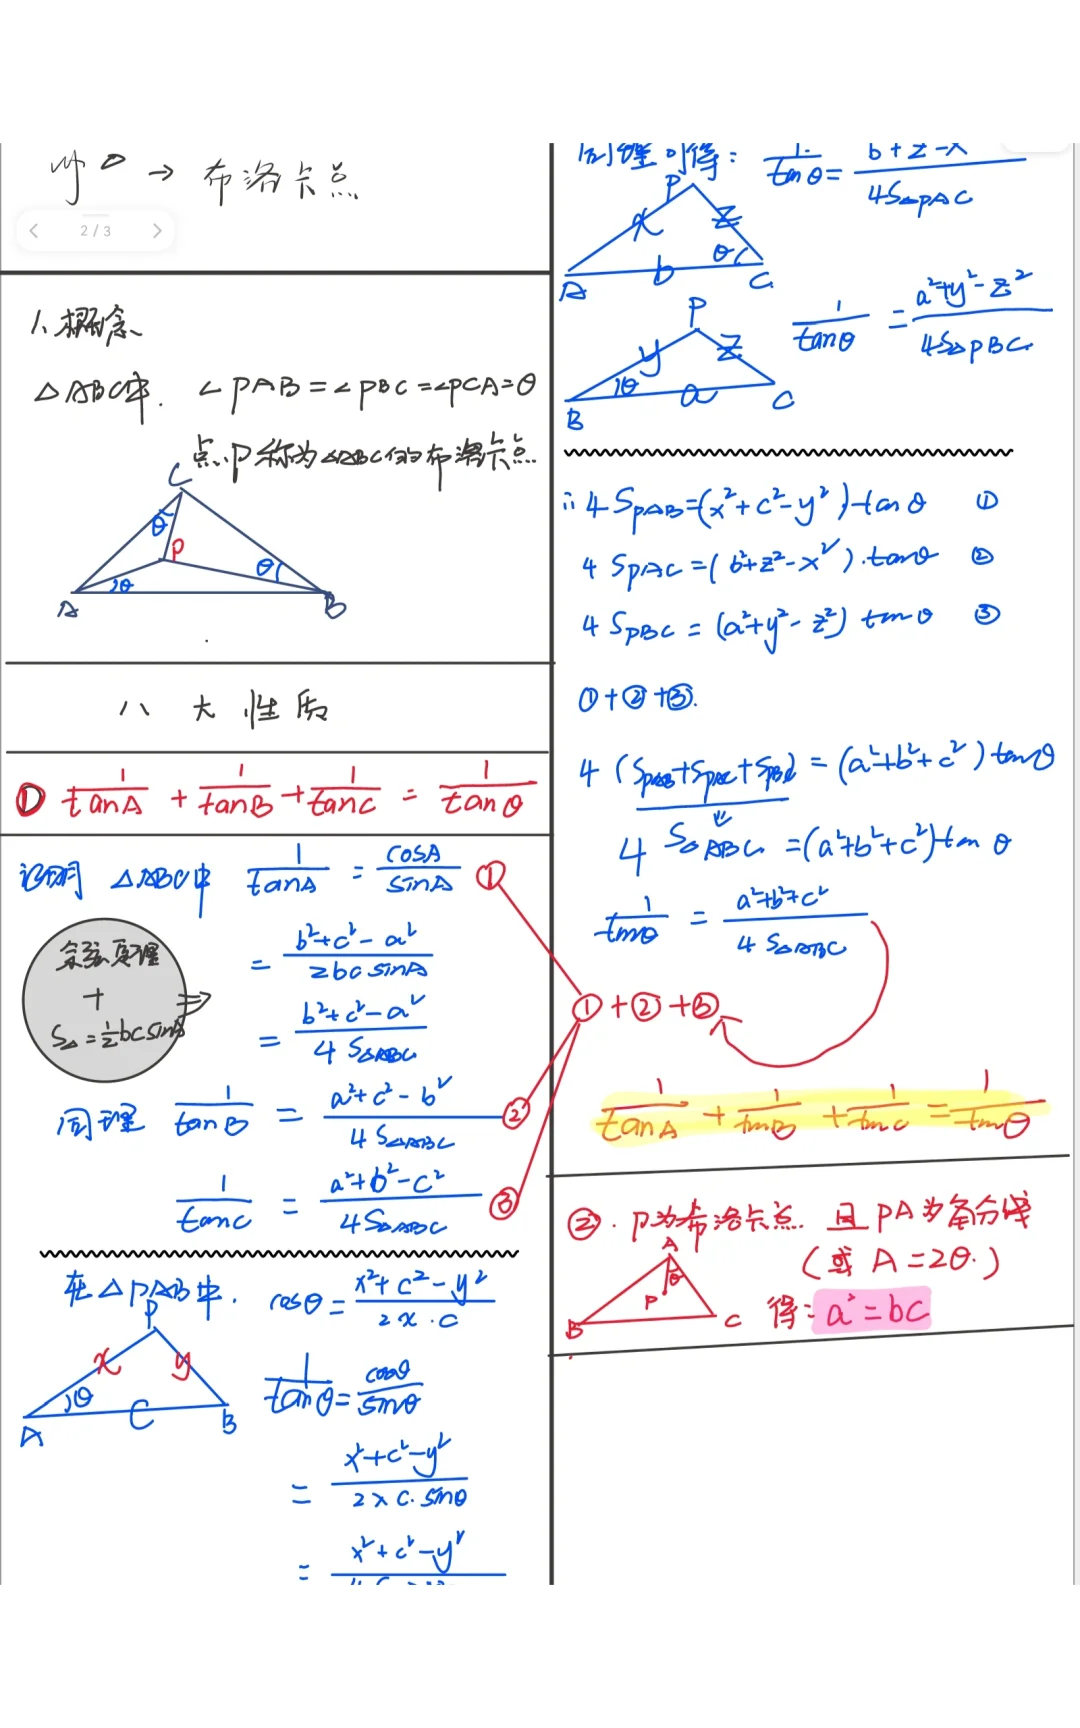 → 布洛卡点
2 / 3
1、概念
△ABC中. ∠PAB=∠PBC=∠PCA=θ
点P称为△ABC的布洛卡点.
C
θ
P
θ
θ
A
B
八大性质
① 1/tanA + 1/tanB + 1/tanC = 1/tanθ
证明 △ABC中 1/tanA = cosA/sinA ①
余弦定理
+
S△=½bcsinA
⇒
= (b²+c²-a²)/(2bc sinA)
= (b²+c²-a²)/(4S△ABC)
同理 1/tanB = (a²+c²-b²)/(4S△ABC) ②
1/tanC = (a²+b²-c²)/(4S△ABC) ③
在△PAB中. cosθ = (x²+c²-y²)/(2x·c)
P
x y
θ
A C B
1/tanθ = cosθ/sinθ
= (x²+c²-y²)/(2xc·sinθ)
= x²+c²-y²
同理可得: 1/tanθ = (b²+z²-x²)/(4S△PAC)
P
x z
θ
A b C
1/tanθ = (a²+y²-z²)/(4S△PBC)
P
y z
θ
B a C
∴ 4S_PAB=(x²+c²-y²)tanθ ①
4S_PAC=(b²+z²-x²)·tanθ ②
4S_PBC=(a²+y²-z²)tanθ ③
①+②+③.
4(S_PAB+S_PAC+S_PBC)=(a²+b²+c²)tanθ
⇓
4S△ABC=(a²+b²+c²)tanθ
1/tanθ = (a²+b²+c²)/(4S△ABC)
①+②+③
1/tanA + 1/tanB + 1/tanC = 1/tanθ
②. P为布洛卡点. 且PA为角分线
(或A=2θ.)
A
θ
P
B
C
得: a²=bc